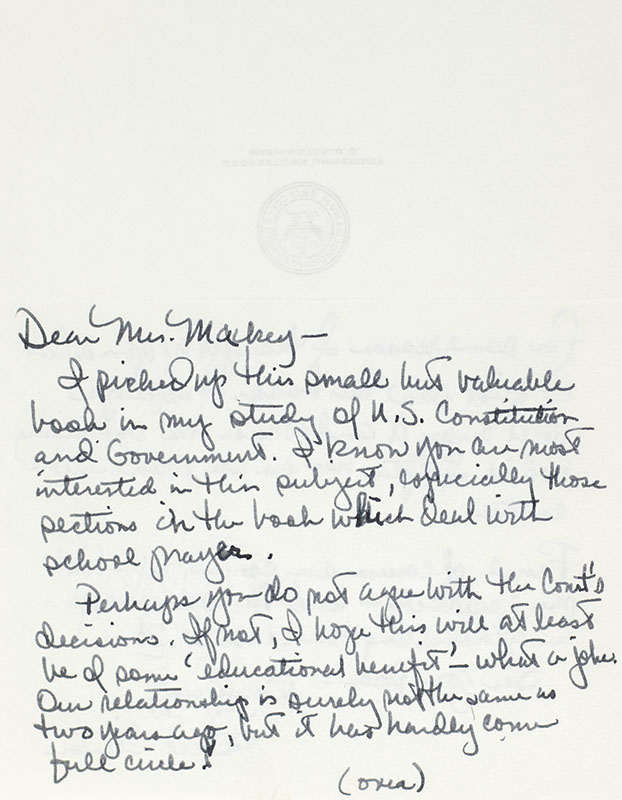 WASHINGTON, D.C.
GEORGETOWN UNIVERSITY
Dear Mrs. Mackey—
I picked up this small but valuable
book in my study of U.S. Constitution
and Government. I know you are most
interested in this subject, especially those
sections in the book which deal with
school prayer.
Perhaps you do not agree with the Court's
decisions. If not, I hope this will at least
be of some 'educational benefit' – what a joke.
Our relationship is surely not the same as
two years ago, but it has hardly come
full circle!
(over)